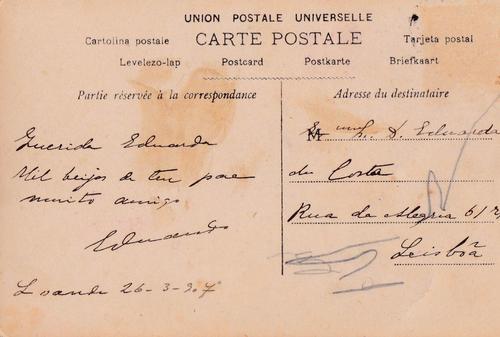 UNION POSTALE UNIVERSELLE
Cartolina postale CARTE POSTALE Tarjeta postal
Levelezo-lap Postcard Postkarte Briefkaart
Partie réservée à la correspondance
Querida Eduarda
Mil beijos de teu pae
muito amigo
Eduardo
Loanda 26-3-907
Adresse du destinataire
M D. Eduarda
da Costa
Rua da Alegria
Leisbôa